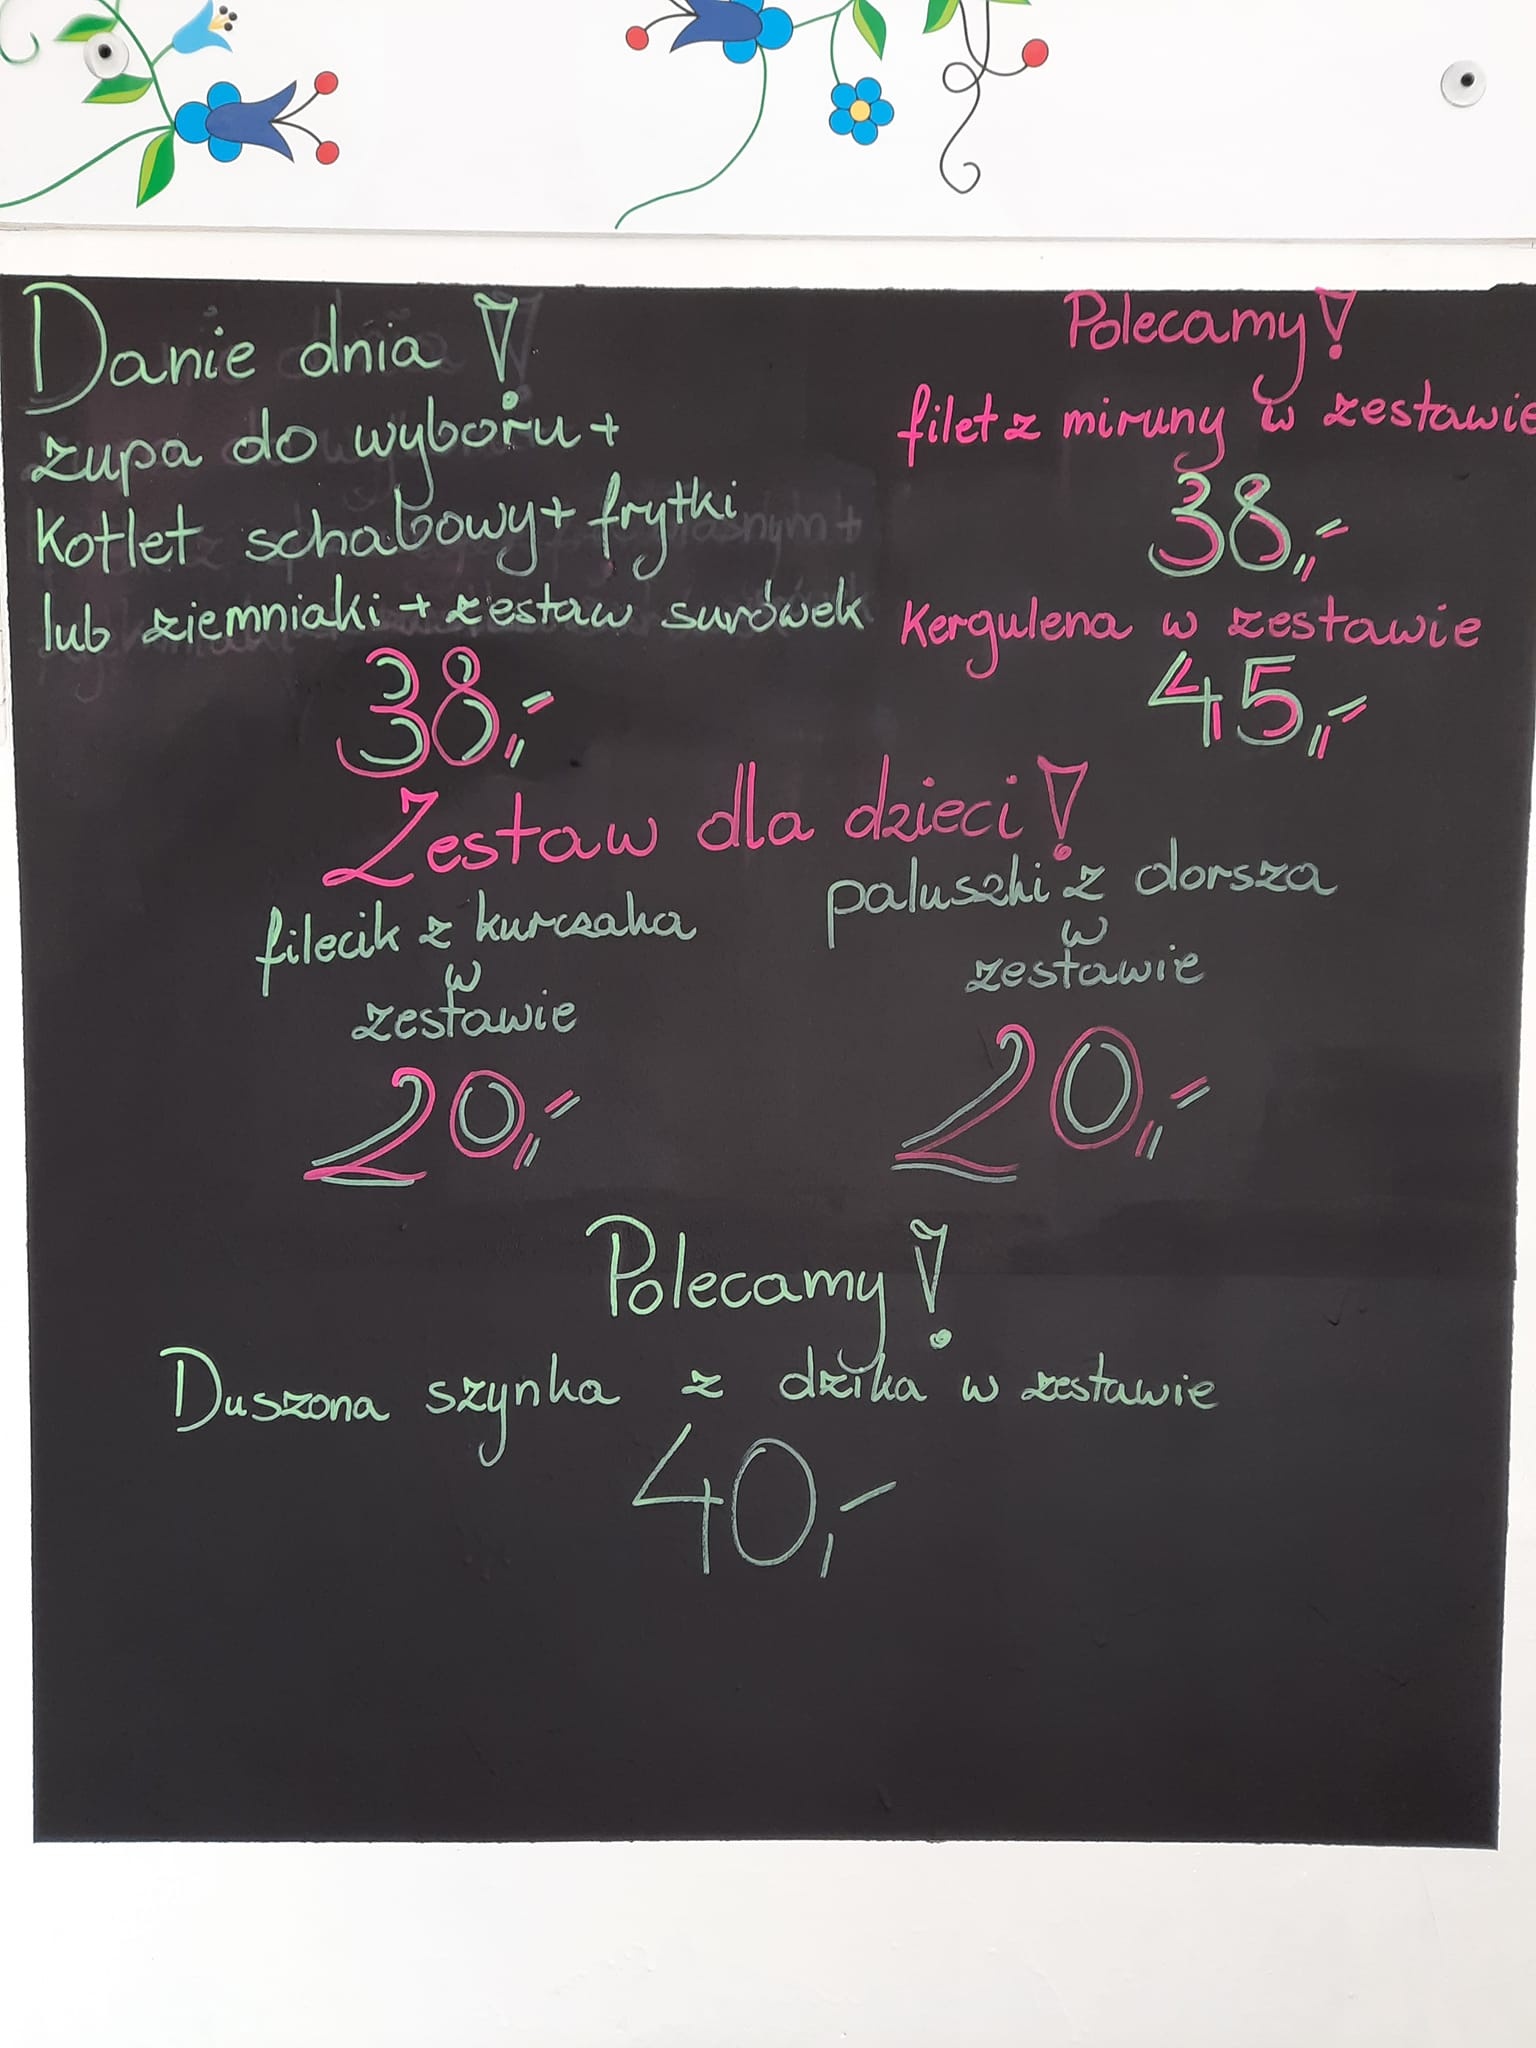 Danie dnia!
zupa do wyboru +
Kotlet schabowy + frytki
lub ziemniaki + zestaw surówek
38,-
Polecamy!
filet z miruny w zestawie
38,-
Kergulena w zestawie
45,-
Zestaw dla dzieci!
filecik z kurczaka
w
zestawie
20,-
paluszki z dorsza
w
zestawie
20,-
Polecamy!
Duszona szynka z dzika w zestawie
40,-